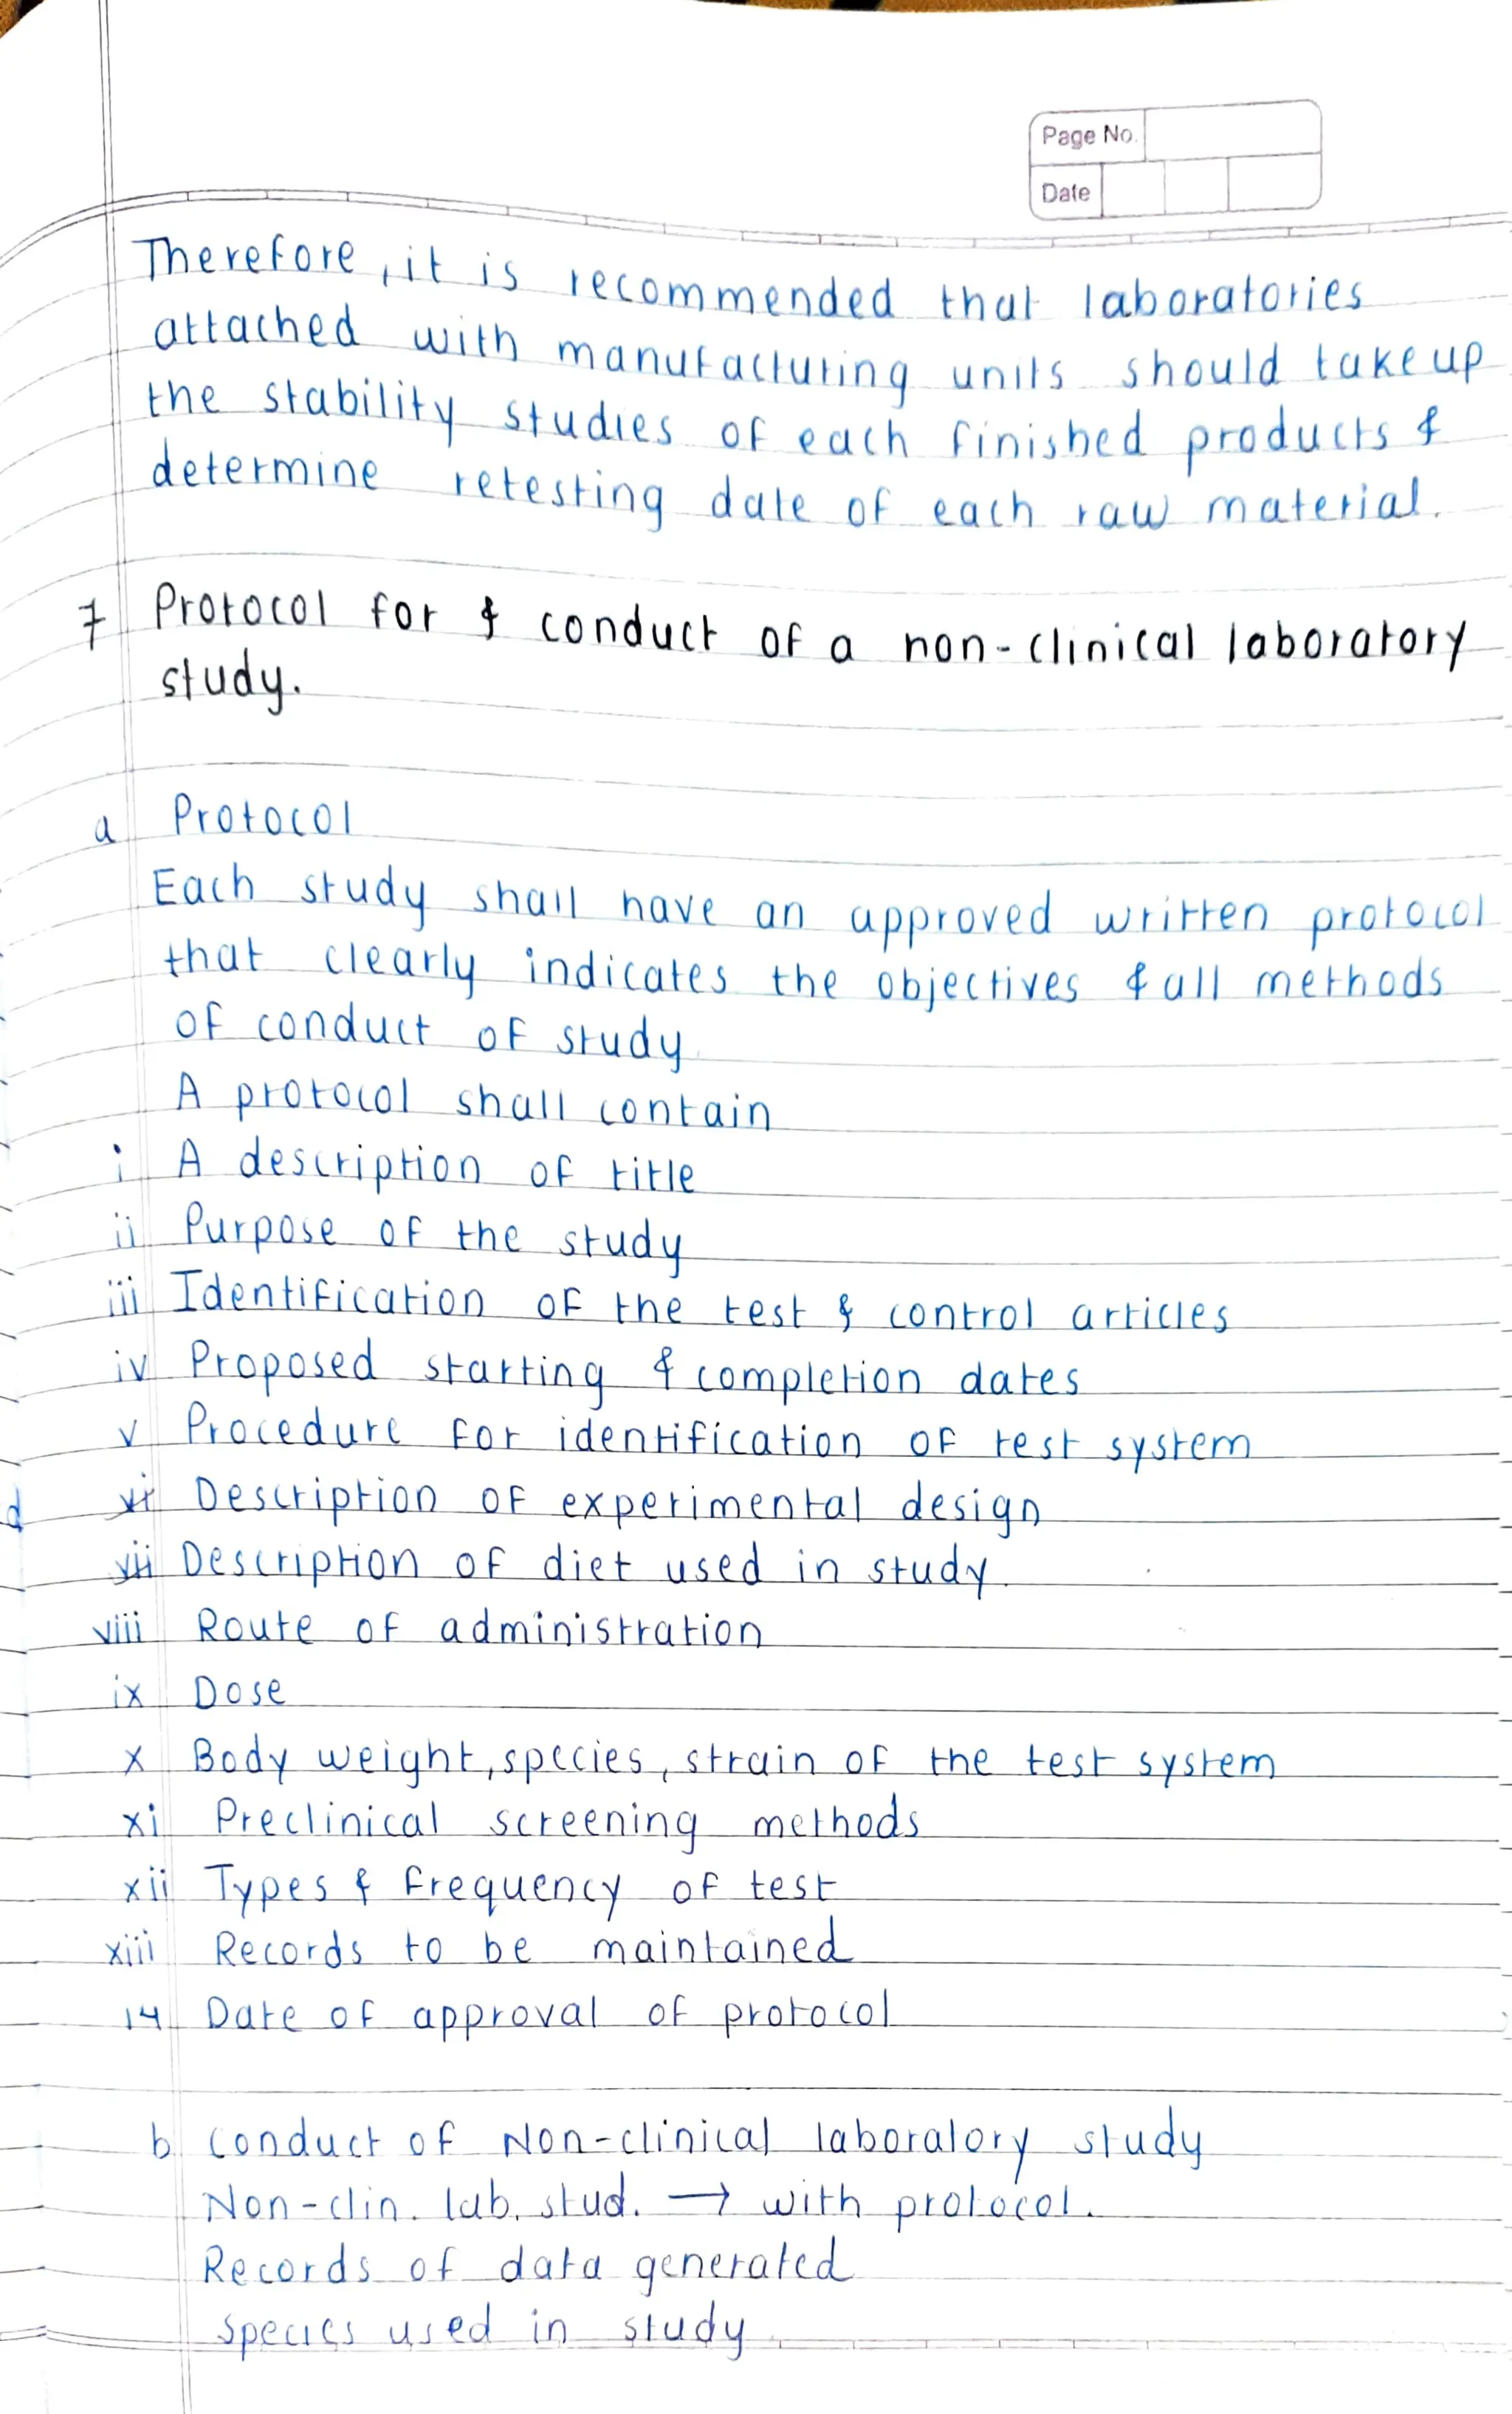 Page No.
Date
Therefore, it is recommended that laboratories
attached with manufacturing units should take up
the stability studies of each finished products &
determine retesting date of each raw material.
7 Protocol for & conduct of a non-clinical laboratory
study.
a Protocol
Each study shall have an approved written protocol
that clearly indicates the objectives & all methods
of conduct of study
A protocol shall contain
i A description of title
ii Purpose of the study
iii Identification of the test & control articles
iv Proposed starting & completion dates
v Procedure for identification of test system
vi Description of experimental design
vii Description of diet used in study.
viii Route of administration
ix Dose
x Body weight, species, strain of the test system
xi Preclinical screening methods
xii Types & frequency of test
xiii Records to be maintained
14 Date of approval of protocol
b. Conduct of Non-clinical laboratory study
Non-clin. lab. stud. → with protocol.
Records of data generated
species used in study.
d